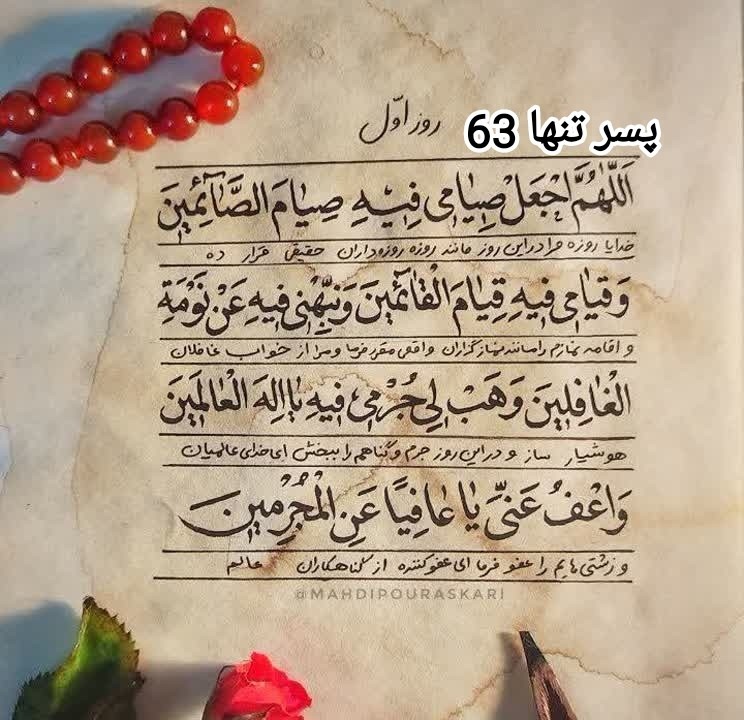 روز اوّل پسر تنها 63
اَللّهُمَّ اجْعَلْ صِیامی فیهِ صِیامَ الصّائِمینَ
خدایا روزه مرا در این روز مانند روزه روزه داران حقیقی قرار ده
وَ قِیامی فیهِ قِیامَ الْقائِمینَ وَ نَبِّهْنی فیهِ عَنْ نَوْمَةِ
و اقامه نمازم را مانند نمازگزاران واقعی مقرر فرما و مرا از خواب غافلان
الْغافِلینَ وَ هَبْ لی جُرْمی فیهِ یا اِلهَ الْعالَمینَ
هوشیار ساز و در این روز جرم و گناهم را ببخش ای خدای عالمیان
وَاعْفُ عَنّی یا عافِیًا عَنِ الْمُجْرِمینَ
و زشتی هایم را عفو فرما ای عفو کننده از گناهکاران عالم
@MAHDIPOURASKARI